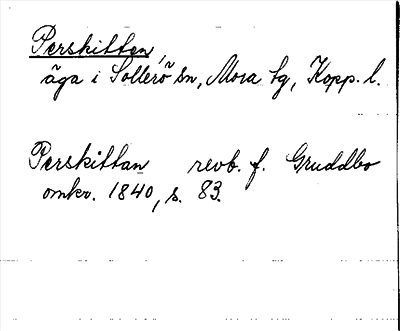 Perskitten,
äga i Sollerö sn, Mora tg, Kopp. l.
Perskittan revb. f. Gruddbo
omkr. 1840, s. 83.